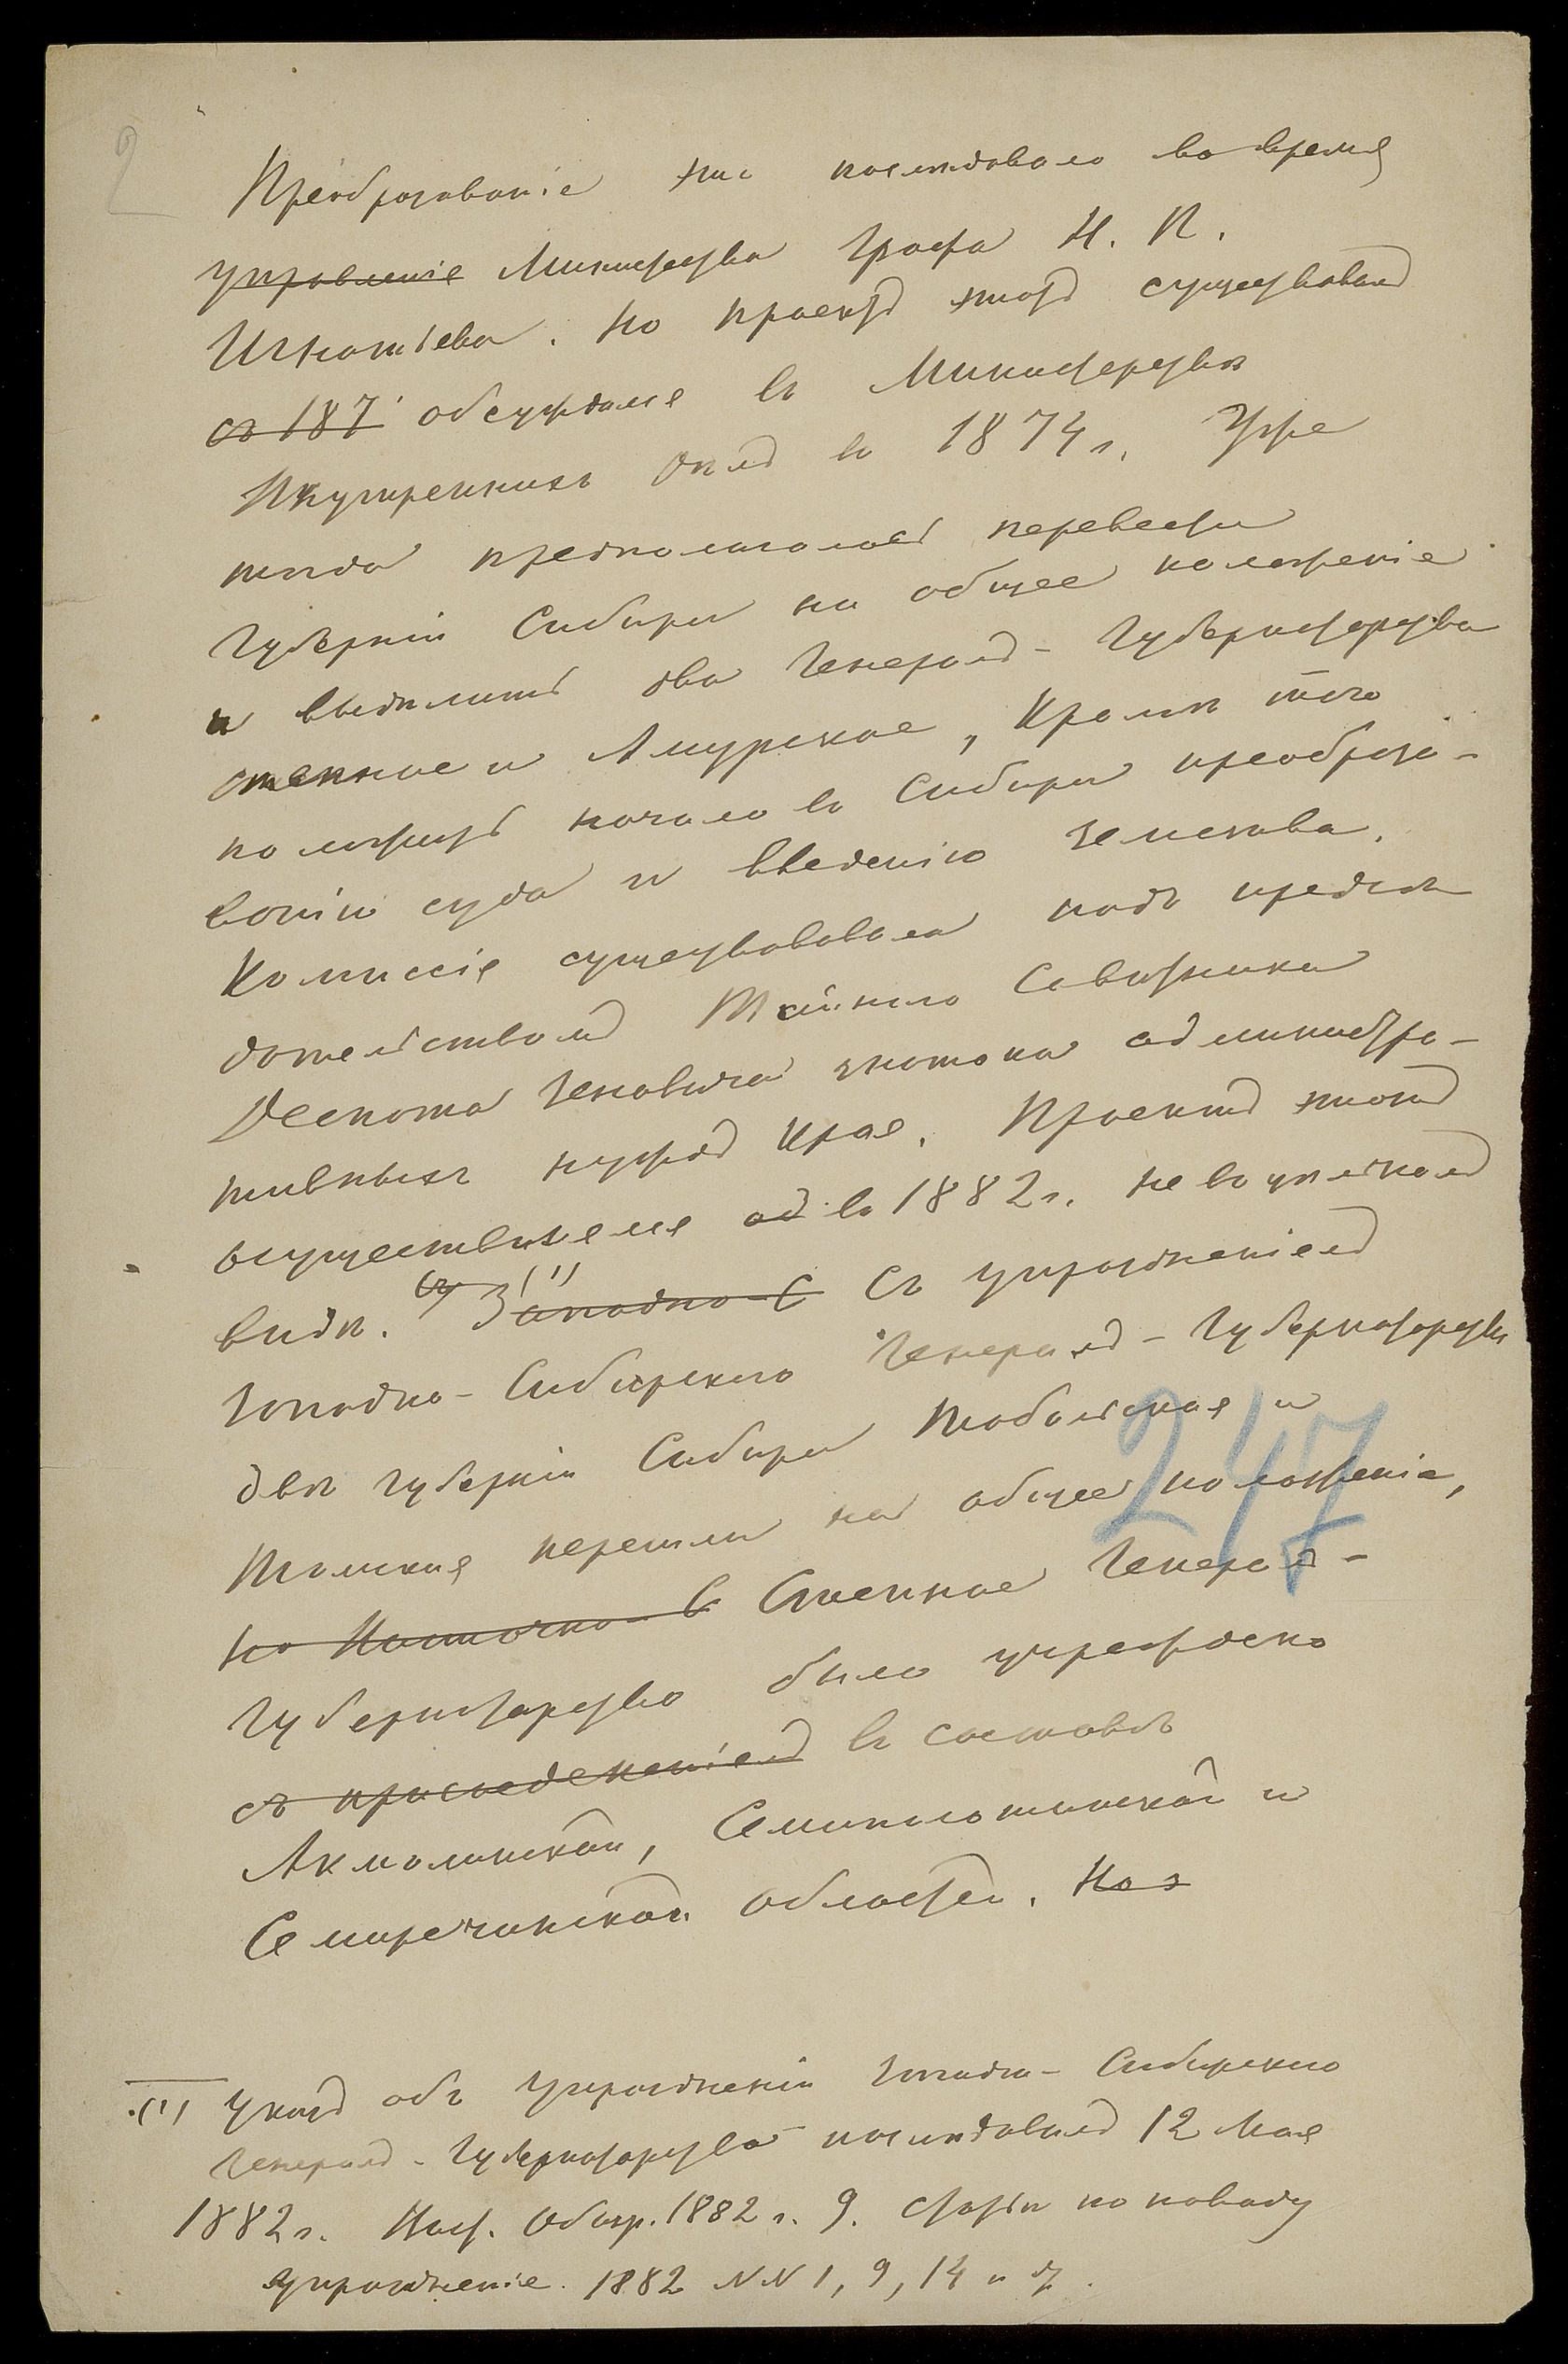 2
Преобразованіе это послѣдовало во время
управленія Министерства Графа Н. П.
Игнатьева. Но проектъ этотъ существовалъ
съ 187 обсуждался въ Министерствѣ
Внутреннихъ Дѣлъ въ 1874 г. Уже
тогда предполагалось перевести
Губерніи Сибири на общее положеніе
и выдѣлить два Генералъ-Губернаторства
степное и Амурское, Кромѣ того
положить начало въ Сибири преобразо-
ванію суда и введенію земства.
Комиссія существовала подъ предсѣ
дательствомъ Тайнаго Совѣтника
Деспота Зеновича знатока администра-
тивныхъ нуждъ края. Проектъ этотъ
осуществился въ 1882 г. не въ цѣльномъ
видѣ. (1) Западно-С Съ упраздненіемъ
Западно-Сибирскаго Генералъ-Губернаторства
двѣ губерніи Сибири Тобольская и
247
Томская перешли на общее положеніе,
но Восточно-С Степное Генералъ-
Губернаторство было учреждено
съ присоединеніемъ въ составѣ
Акмолинской, Семипалатинской и
Семиреченской областей. Но
(1) Указъ объ упраздненіи Западно-Сибирскаго
Генералъ-Губернаторства послѣдовалъ 12 Мая
1882 г. Вост. Обозр. 1882 г. 9. статьи по поводу
упраздненія. 1882 NN 1, 9, 14 и